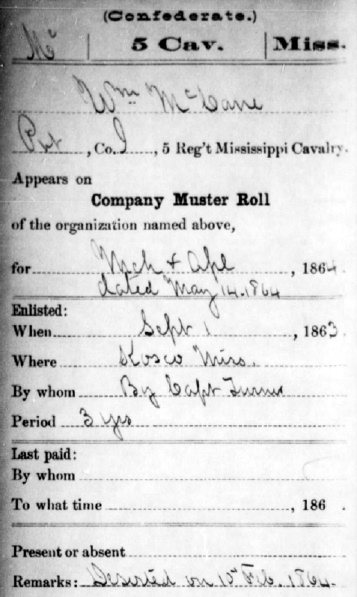 (Confederate.)
Mc | 5 Cav. | Miss.
Wm McCane
Pvt, Co. I, 5 Reg't Mississippi Cavalry.
Appears on
Company Muster Roll
of the organization named above,
for Mch & Apl, 1864
dated May 14. 1864
Enlisted:
When Sept 1, 1863
Where Kosco Miss.
By whom By Capt Turner
Period 3 yrs
Last paid:
By whom
To what time , 186 .
Present or absent
Remarks: Deserted on 10th Feb. 1864.